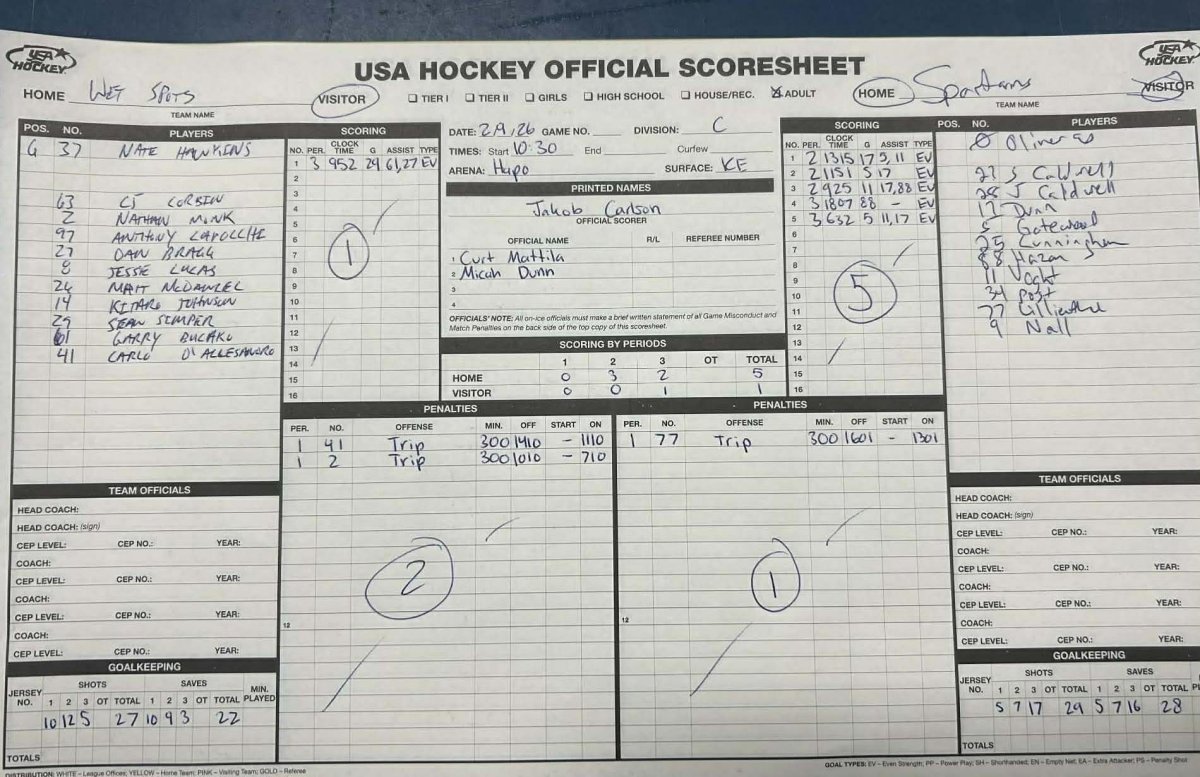 USA HOCKEY
USA HOCKEY
USA HOCKEY OFFICIAL SCORESHEET
HOME WET SPOTS VISITOR
TEAM NAME
☐ TIER I ☐ TIER II ☐ GIRLS ☐ HIGH SCHOOL ☐ HOUSE/REC. ☒ ADULT
HOME Spartans VISITOR
TEAM NAME
POS. NO. PLAYERS
G 37 NATE HAWKINS
63 CJ CORBIN
2 NATHAN MONK
97 ANTHONY
27 DAN BRAGG
8 JESSE LUCAS
26 MATT McDANIEL
14 KITARO JOHNSON
29 SEAN SEMPER
61 GARRY
41 CARLO D'ALLESANDRO
SCORING
NO. PER. CLOCK TIME G ASSIST TYPE
1 3 952 29 61,27 EV
2
3
4
5
6
7
8
9
10
11
12
13
14
15
16
1
DATE: 2A,26 GAME NO. DIVISION: C
TIMES: Start 10:30 End Curfew
ARENA: Hupo SURFACE: ICE
PRINTED NAMES
Jakob Carlson
OFFICIAL SCORER
OFFICIAL NAME R/L REFEREE NUMBER
1 Curt Mattila
2 Micah Dunn
3
4
OFFICIALS' NOTE: All on-ice officials must make a brief written statement of all Game Misconduct and
Match Penalties on the back side of the top copy of this scoresheet.
SCORING BY PERIODS
1 2 3 OT TOTAL
HOME 0 3 2 5
VISITOR 0 0 1 1
SCORING
NO. PER. CLOCK TIME G ASSIST TYPE
1 2 1315 17 5,11 EV
2 2 1151 5 17 EV
3 2 925 11 17,88 EV
4 3 1807 88 - EV
5 3 632 5 11,17 EV
6
7
8
9
10
11
12
13
14
15
16
5
POS. NO. PLAYERS
Ø Oliveras
27 S Caldwell
28 J Caldwell
17 Dunn
5 Gatewood
25 Cunningham
88 Hazen
11 Vogt
34 Post
77
9 Nall
PENALTIES
PER. NO. OFFENSE MIN. OFF START ON
1 41 Trip 300 1410 - 1110
1 2 Trip 300 1010 - 710
12
2
PENALTIES
PER. NO. OFFENSE MIN. OFF START ON
1 77 Trip 300 1601 - 1301
12
1
TEAM OFFICIALS
HEAD COACH:
HEAD COACH: (sign)
CEP LEVEL: CEP NO.: YEAR:
COACH:
CEP LEVEL: CEP NO.: YEAR:
COACH:
CEP LEVEL: CEP NO.: YEAR:
COACH:
CEP LEVEL: CEP NO.: YEAR:
GOALKEEPING
JERSEY NO. SHOTS SAVES MIN. PLAYED
1 2 3 OT TOTAL 1 2 3 OT TOTAL
10 12 5 27 10 9 3 22
TOTALS
TEAM OFFICIALS
HEAD COACH:
HEAD COACH: (sign)
CEP LEVEL: CEP NO.: YEAR:
COACH:
CEP LEVEL: CEP NO.: YEAR:
COACH:
CEP LEVEL: CEP NO.: YEAR:
COACH:
CEP LEVEL: CEP NO.: YEAR:
GOALKEEPING
JERSEY NO. SHOTS SAVES
1 2 3 OT TOTAL 1 2 3 OT TOTAL
5 7 17 29 5 7 16 28
TOTALS
DISTRIBUTION: WHITE – League Offices; YELLOW – Home Team; PINK – Visiting Team; GOLD – Referee
GOAL TYPES: EV – Even Strength, PP – Power Play; SH – Shorthanded; EN – Empty Net; EA – Extra Attacker; PS – Penalty Shot